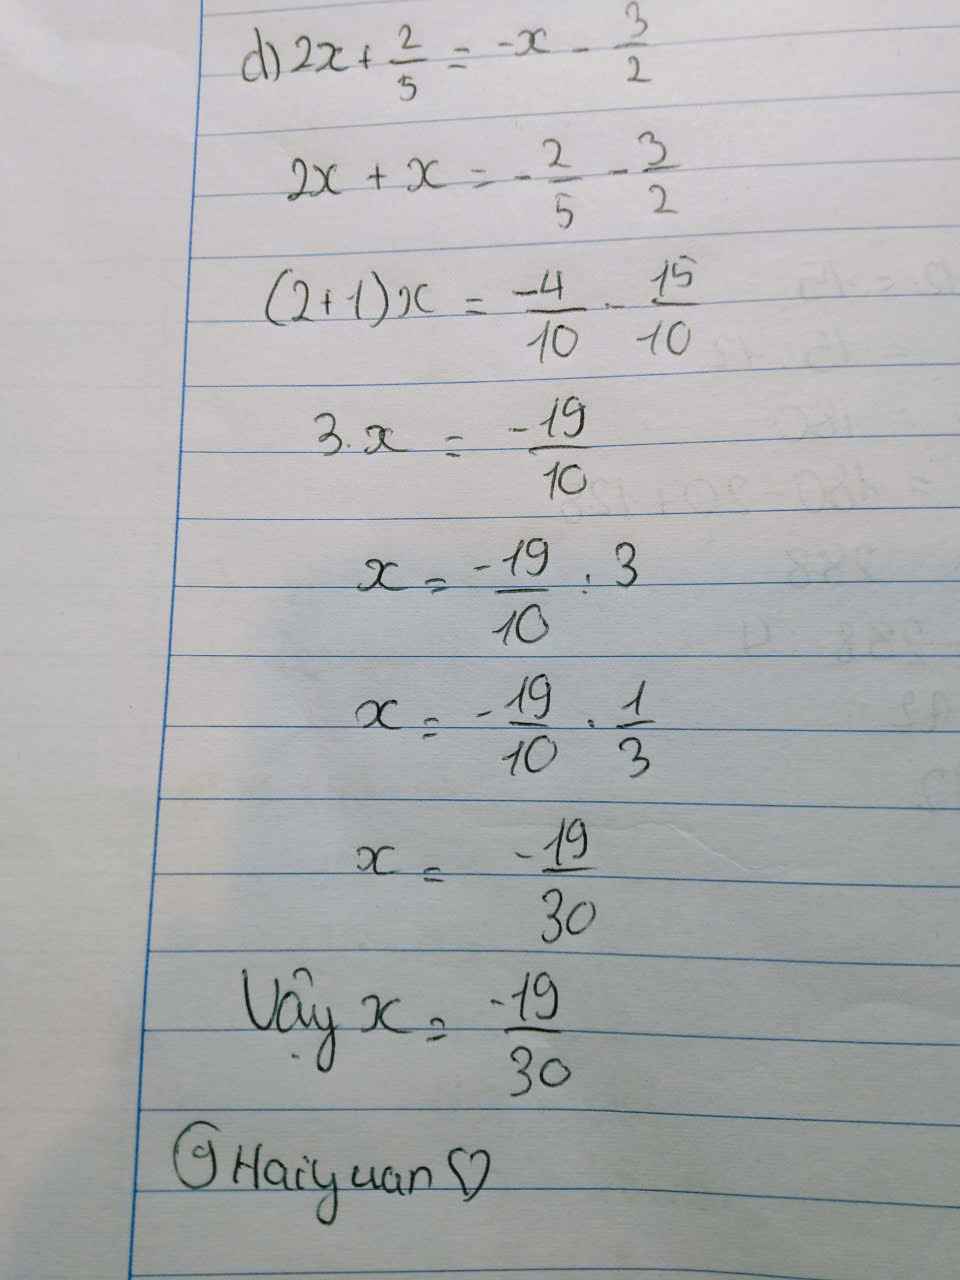 d) 2x + 2/5 = -x - 3/2
2x + x = -2/5 - 3/2
(2+1)x = -4/10 - 15/10
3.x = -19/10
x = -19/10 : 3
x = -19/10 . 1/3
x = -19/30
Vậy x = -19/30
©Haiyuan♡